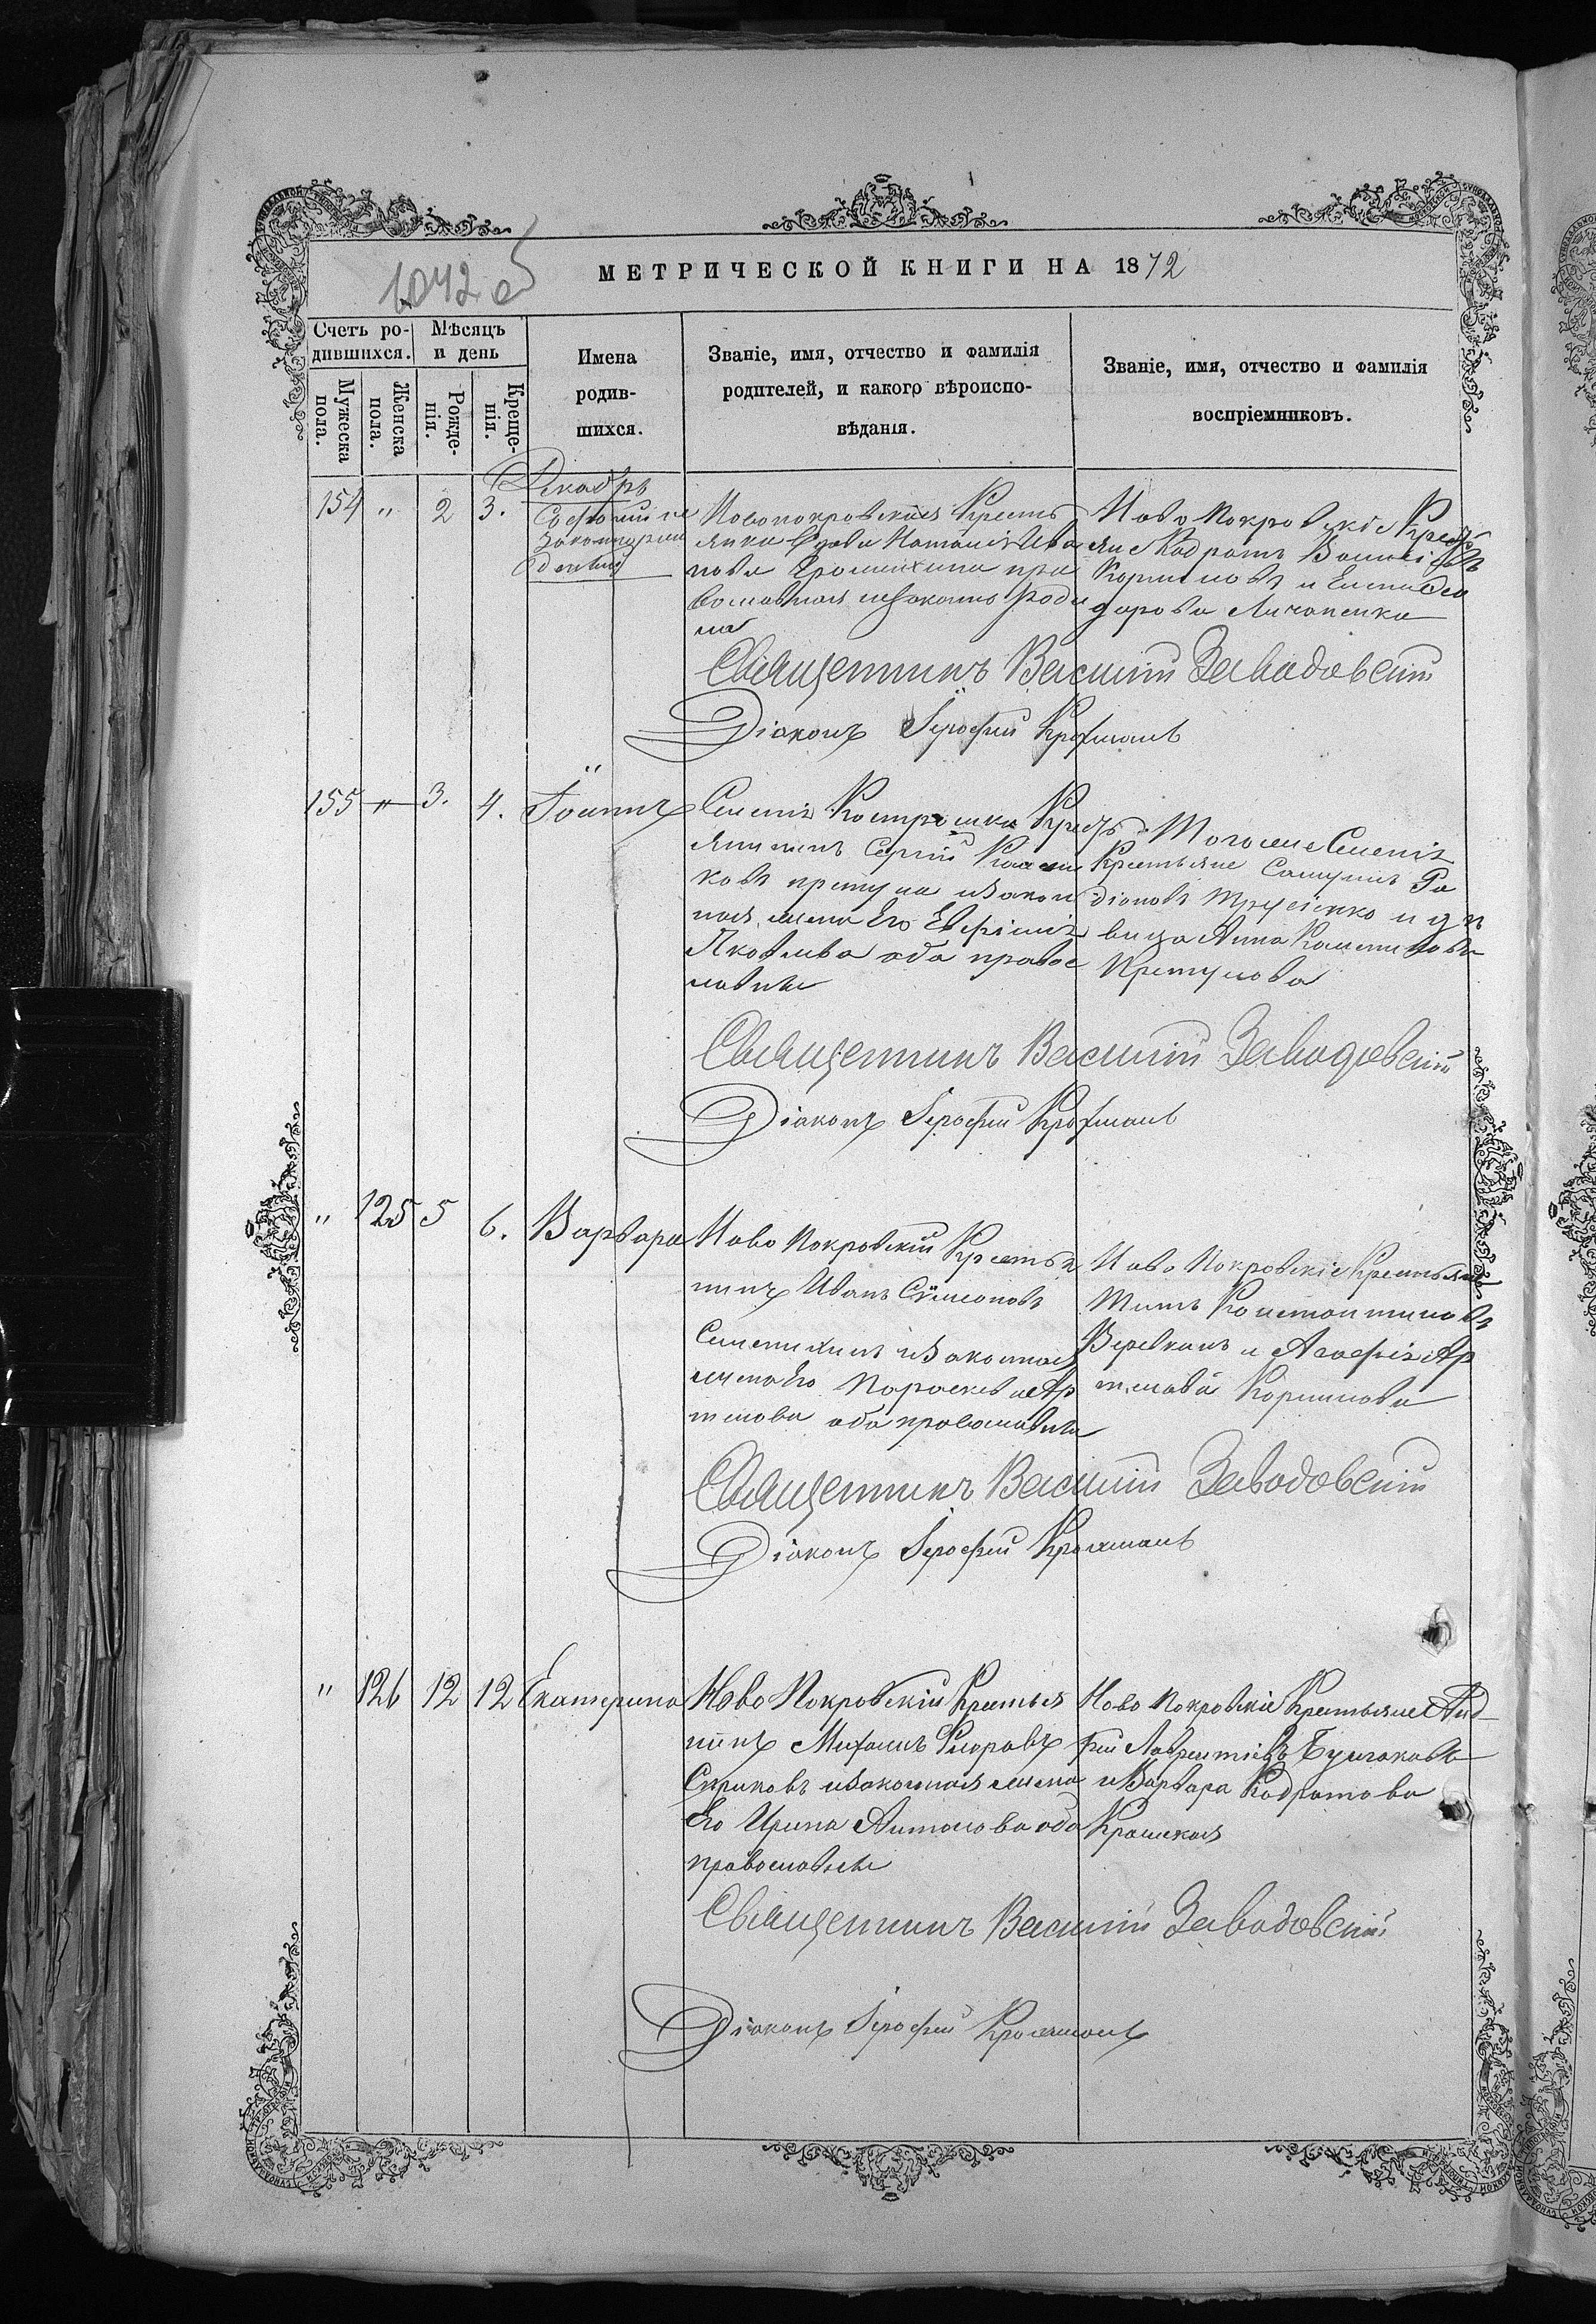 1042 об
МЕТРИЧЕСКОЙ КНИГИ НА 1872
Счетъ ро-
дившихся.
Мѣсяцъ
и день
Мужеска
пола.
Женска
пола.
Рожде-
нія.
Креще-
нія.
Имена
родив-
шихся.
Званіе, имя, отчество и фамилія
родителей, и какого вѣроиспо-
вѣданія.
Званіе, имя, отчество и фамилія
воспріемниковъ.
Декабрь
154 " 2 3.
Новопокровская Кресть
янка Вдова Наталія Ива
нова Еромихина пра
вославная
Ново Покровскіе Крестья
не Кодратъ
Корниловъ и
дорова
Священникъ Василій Заводовскій
Діаконъ Іерофей
155 " 3. 4. Іоаннъ
Селенія Костромка Кресть
янинъ Сергій
ковъ Претула и закон
ная жена Его Евфимія
Яковлева оба правос
лавные
Тогоже Селенія
Крестьяне Самуилъ Ра
діоновъ и дѣ
вица Анна
Претулова
Священникъ Василій Заводовскій
Діаконъ Іерофей
" 125 5 6. Варвара
Ново Покровскій Крестья
нинъ Иванъ Сѵмеоновъ
Семенихинъ и законная
жена Его Параскева Ар
темова оба православные
Ново Покровскіе Крестьяне
Титъ Константиновъ
Веревкинъ и Агафія Ар
темова Корнилова
Священникъ Василій Заводовскій
Діаконъ Іерофей
" 126 12 12 Екатерина
Ново Покровскій Крестья
нинъ Михаилъ
Скриковъ и законная жена
Его Ирина Антонова оба
православные
Ново Покровскіе Крестьяне Анд
рей Лаврентіевъ Булгаковъ
и Варвара Кодратова
Священникъ Василій Заводовскій
Діаконъ Іерофей